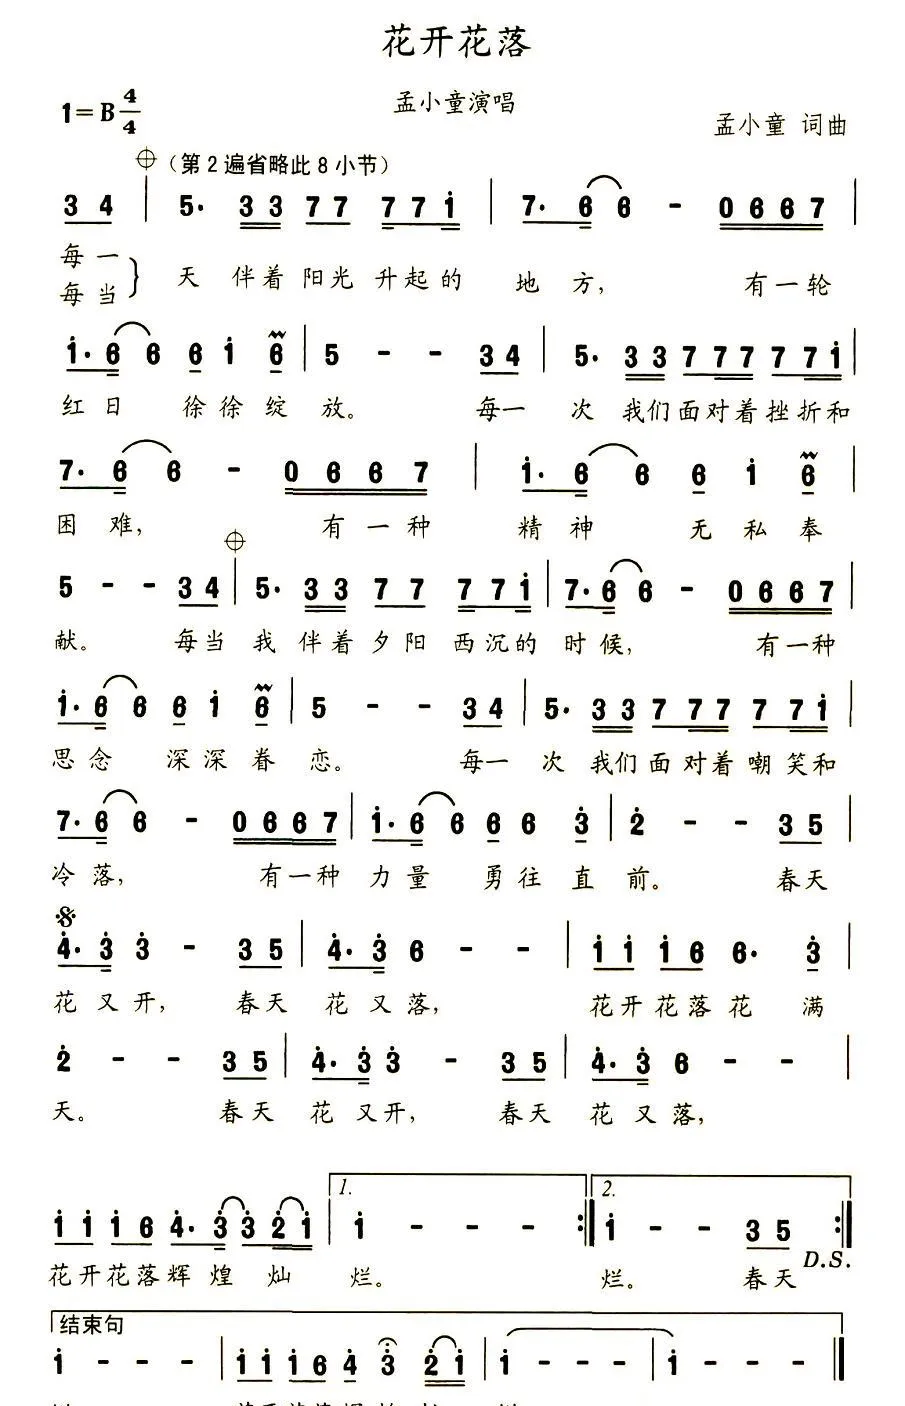 花开花落
孟小童演唱
1=B 4/4
孟小童 词曲
（第2遍省略此8小节）
3 4 | 5· 3 3 7 7 7 7 i | 7· 6 6 - 0 6 6 7 |
每一 天 伴着 阳光 升起的 地 方， 有一轮
每当
i· 6 6 6 i 6 | 5 - - 3 4 | 5· 3 3 7 7 7 7 7 i |
红日 徐徐绽 放。 每一 次 我们面对着挫折和
7· 6 6 - 0 6 6 7 | i· 6 6 6 i 6 |
困难， 有一种 精神 无私奉
5 - - 3 4 | 5· 3 3 7 7 7 7 i | 7· 6 6 - 0 6 6 7 |
献。 每当 我 伴着夕阳 西沉的 时候， 有一种
i· 6 6 6 i 6 | 5 - - 3 4 | 5· 3 3 7 7 7 7 7 i |
思念 深深眷 恋。 每一 次 我们面对着嘲笑和
7· 6 6 - 0 6 6 7 | i· 6 6 6 6 3 | 2 - - 3 5 |
冷落， 有一种 力量 勇往直 前。 春天
4· 3 3 - 3 5 | 4· 3 6 - - | i i i 6 6· 3 |
花又开， 春天 花又落， 花开花落花 满
2 - - 3 5 | 4· 3 3 - 3 5 | 4· 3 6 - - |
天。 春天 花又开， 春天 花又落，
1. 2.
i i i 6 4· 3 3 2 i | i - - - :| i - - 3 5 :|
D.S.
花开花落辉煌 灿 烂。 烂。 春天
结束句
i - - - | i i i 6 4 3 2 i | i - - - | i - - - |